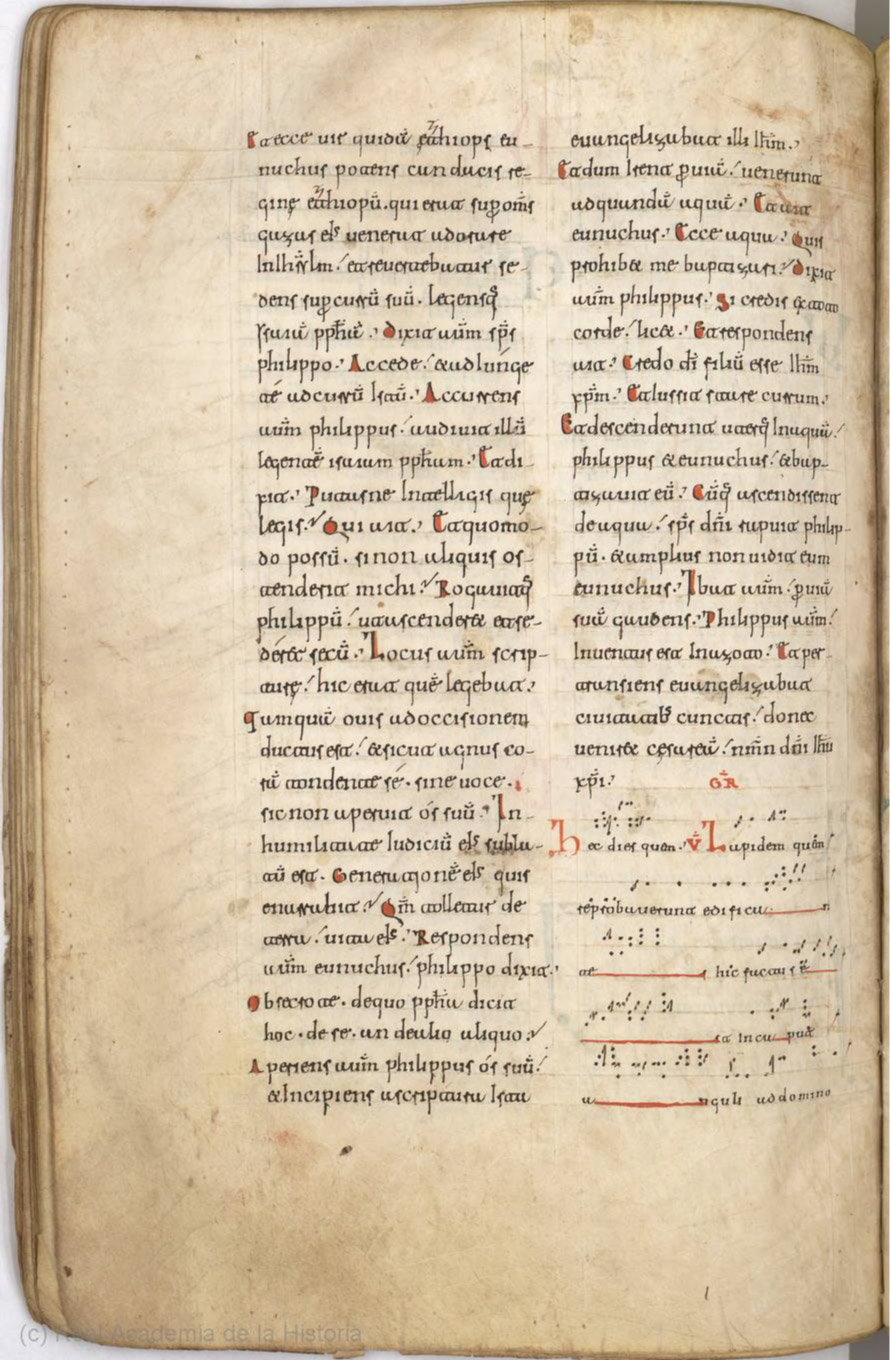 Et ecce uir quidā ethiops eu-
nuchus potens candacis re-
ginę ethiopū. qui erat sup om̄s
gazas eiꝰ uenerat adorare
In ihrlm et reuertebatur se-
dens sup currū suū. legensq;
Isaiā pph̄ā. Dixit aūm sp̄s
philippo. Accede & adlunge
té ad currū Isaū. Accurrens
aūm philippus audiuit illū
legentē isaiam pph̄am. Et di-
xit. Putasne Intelligis quę
legis. Qui ait. Et quomo-
do possū. si non aliquis os-
tenderit michi. Rogauitq;
philippū ut ascenderet et se-
déret secū. Locus aūm scrip-
turę hic erat quē legebat.
Tamquā ouis ad occisionem
ductus est. & sicut agnus co-
rā tondente sé. sine uoce.
sic non aperuit ós suū. In
humilitate Iudiciū eiꝰ subla-
tū est. Generationē eiꝰ quis
enarrabit. Qm̄ tolletur de
terra uita eiꝰ. Respondens
aūm eunuchus philippo dixit.
Obsecro te. de quo pph̄a dicit
hoc. de se. an de alio aliquo.
Aperiens aūm philippus ós suū
& Incipiens a scriptura Isaū
euangelizabat illi ih̄m.
Et dum Irent p uiā uenerunt
ad quandā aquā. Et ait
eunuchus. Ecce aqua. Quis
prohibet me baptizari. Dixit
aūm philippus. Si credis ex toto
corde licet. Et respondens
ait. Credo dī filiū esse ih̄m
xp̄m. Et Iussit stare currum.
Et descenderunt uterq; In aquā
philippus & eunuchus & bap-
tizauit eū. Cūq; ascendissent
de aqua sp̄s dn̄i rapuit philip-
pū. & amplius non uidit eum
eunuchus. Ibat aūm p uiā
suā gaudens. Philippus aūm
Inuentus est In azoto. Et per-
transiens euangelizabat
ciuitatibꝰ cunctis donec
ueniret cesareā. nm̄n dn̄i ih̄u
xp̄i. GR̄
Hec dies quam. V̄ Lapidem quem
reprobauerunt edifican
tes hic factus ē
ta In caput
a anguli a domino
(c) Real Academia de la Historia